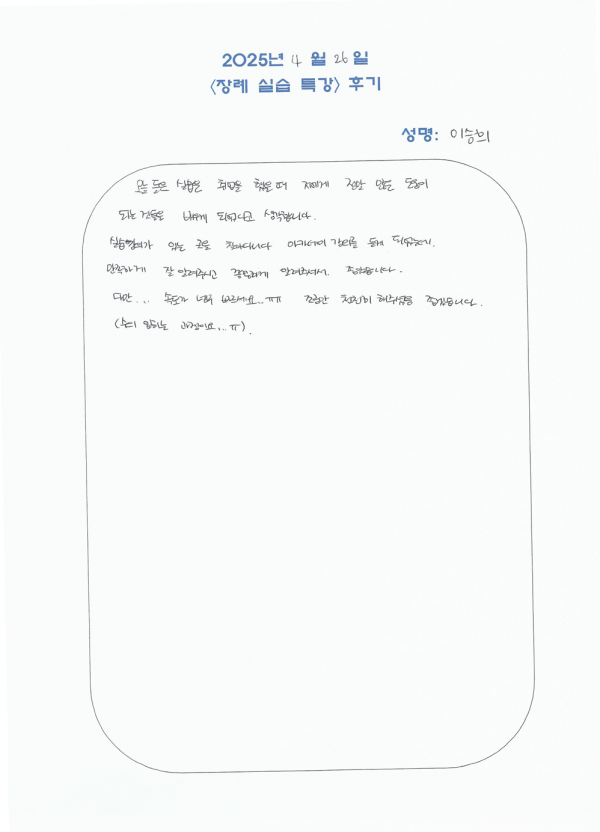 2025년 4월 26일
<장례 실습 특강> 후기
성명: 이승희
오늘 들은 실습은 취업을 했을 때 저에게 정말 많은 도움이
되는 것들을 배우게 되었다고 생각합니다.
실습 있는 곳을 찾아다니다 아카데미 강의를 듣게 되었는데,
만족하게 잘 알려주시고 알려주셔서 좋았습니다.
다만... 속도가 너무 빠르세요...ㅠㅠ 조금만 천천히 해주셨으면 좋겠습니다.
(손이 안되는 과정이요...ㅠ).